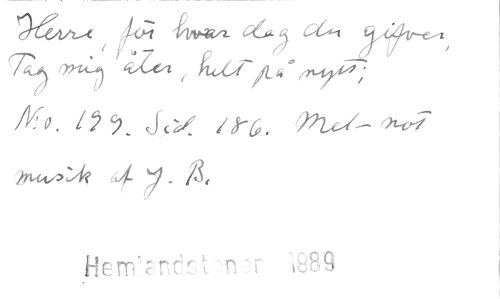 Herre, för hvar dag du gifver,
Tag mig åter, helt på nytt;
N:o. 199. Sid. 186. Mel- not
musik af J. B.
Hemlandstoner 1889